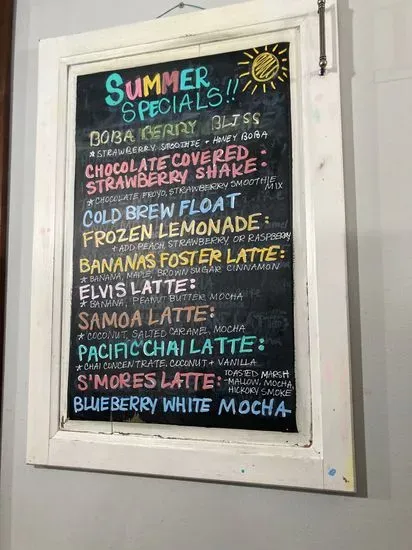 SUMMER
SPECIALS!!
BOBA BERRY BLISS
*STRAWBERRY SMOOTHIE + HONEY BOBA
CHOCOLATE COVERED
STRAWBERRY SHAKE:
*CHOCOLATE FROYO, STRAWBERRY SMOOTHIE MIX
COLD BREW FLOAT
FROZEN LEMONADE:
+ ADD PEACH, STRAWBERRY, OR RASPBERRY
BANANAS FOSTER LATTE:
*BANANA, MAPLE, BROWN SUGAR CINNAMON
ELVIS LATTE:
*BANANA, PEANUT BUTTER, MOCHA
SAMOA LATTE:
*COCONUT, SALTED CARAMEL, MOCHA
PACIFIC CHAI LATTE:
*CHAI CONCENTRATE, COCONUT + VANILLA
S'MORES LATTE: TOASTED MARSH
-MALLOW, MOCHA,
HICKORY SMOKE
BLUEBERRY WHITE MOCHA